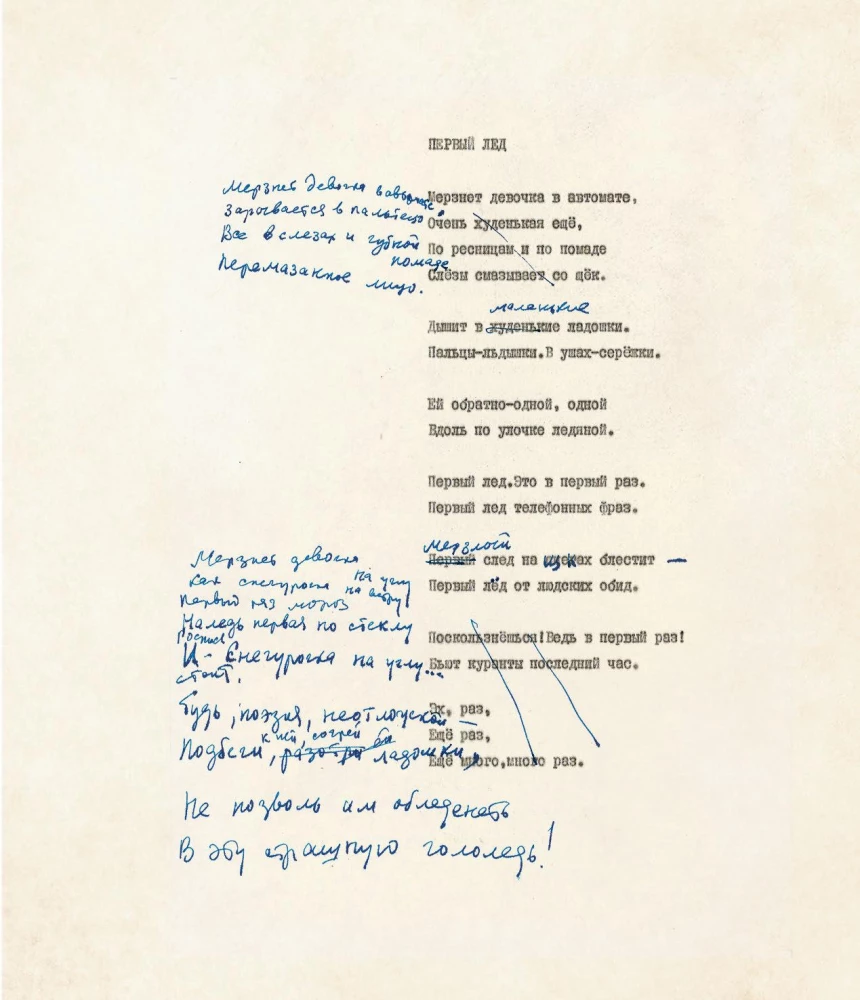 ПЕРВЫЙ ЛЕД
Мерзнет девочка в автомате
Зарывается в пальтецо.
Все в слезах и губной
помаде
Перемазанное лицо.
Мерзнет девочка в автомате,
Очень худенькая ещё,
По ресницам и по помаде
Слёзы смазывает со щёк.
маленькие
Дышит в худенькие ладошки.
Пальцы-льдышки.В ушах-серёжки.
Ей обратно-одной, одной
Вдоль по улочке ледяной.
Первый лед.Это в первый раз.
Первый лед телефонных фраз.
мерзлый
Первый след на щеках блестит —
Первый лёд от людских обид.
Поскользнёшься!Ведь в первый раз!
Бьют куранты последний час.
Эх, раз,
Ещё раз,
Ещё много,много раз.
Мерзнет девочка
как снегурочка на углу
Первый раз мороз
Наледь первая по стеклу
И - Снегурочка на углу...
стоит.
Будь, поэзия, неотлучкой —
к ней, согрей
Подбеги, разотри ладошки,
Не позволь им обледенеть
В эту страшную гололедь!